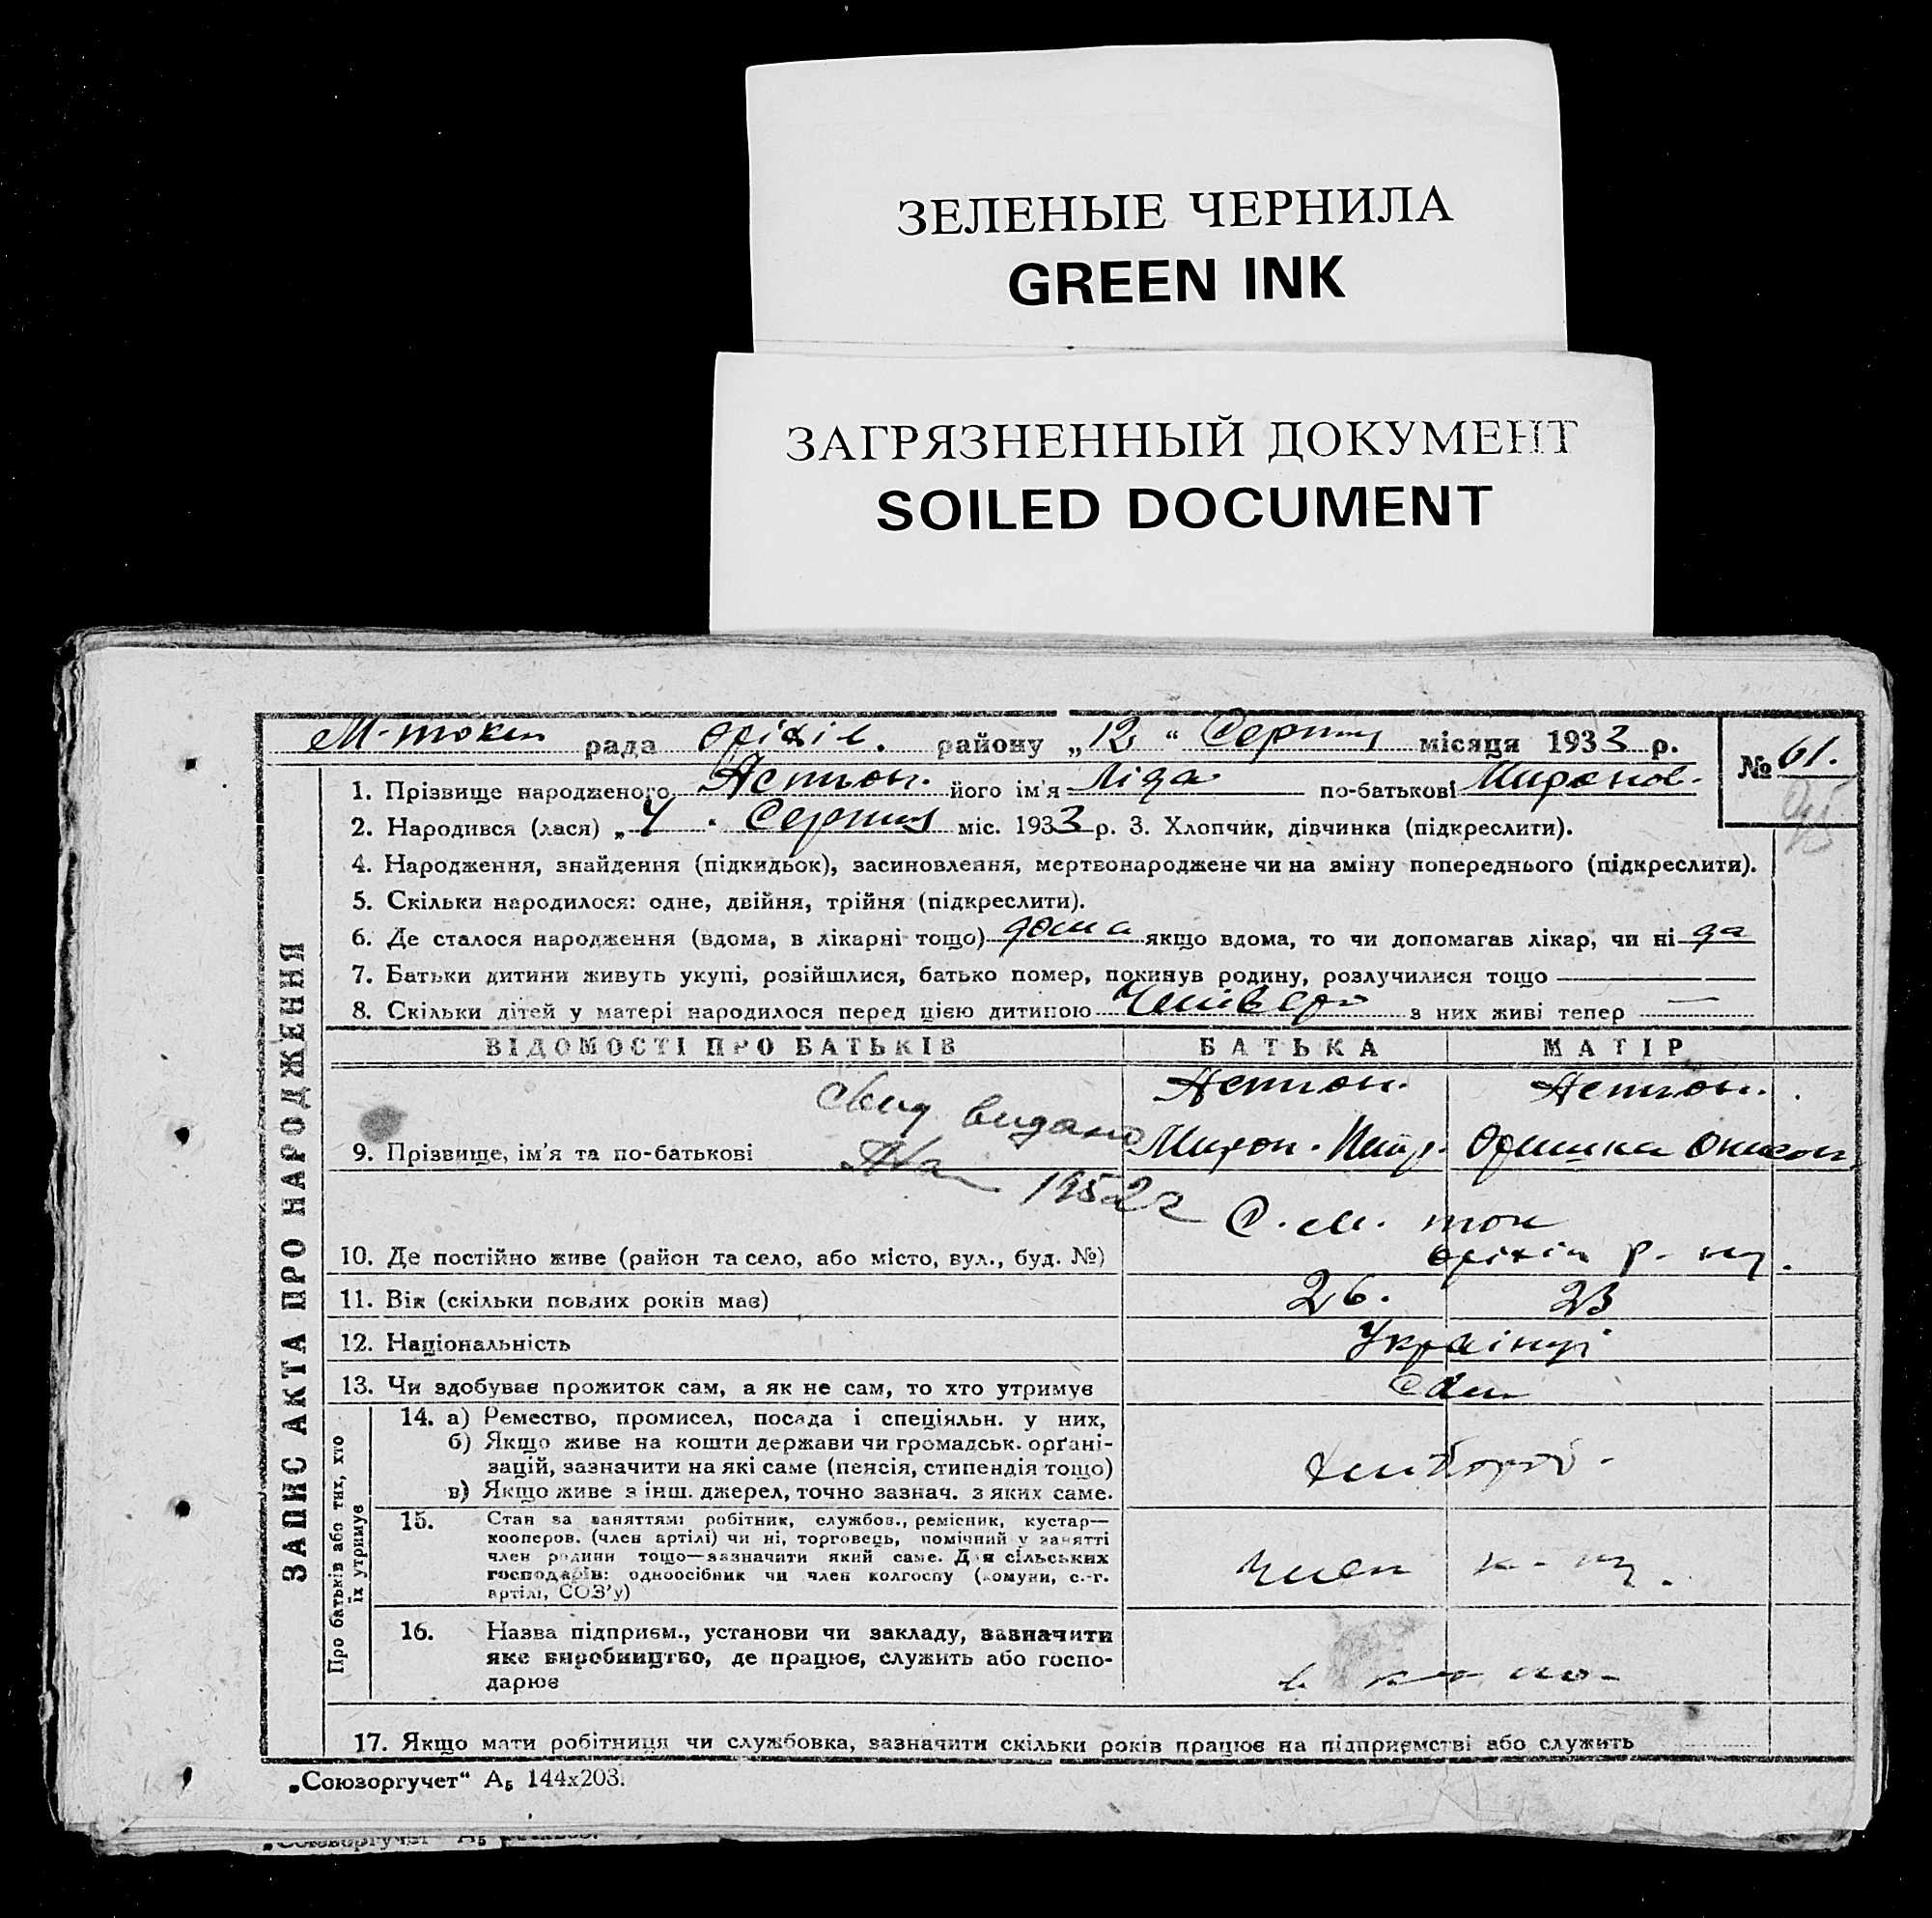 ЗЕЛЕНЫЕ ЧЕРНИЛА
GREEN INK
ЗАГРЯЗНЕННЫЙ ДОКУМЕНТ
SOILED DOCUMENT
М-токм рада Оріхів. району „12“ Серпня місяця 1933 р.
№ 61.
1. Прізвище народженого його ім'я Ліда по-батькові Миронов.
2. Народився (лася) „4 Серпня міс. 1933 р. 3. Хлопчик, дівчинка (підкреслити).
4. Народження, знайдення (підкидьок), засиновлення, мертвонароджене чи на зміну попереднього (підкреслити).
5. Скільки народилося: одне, двійня, трійня (підкреслити).
6. Де сталося народження (вдома, в лікарні тощо) дома якщо вдома, то чи допомагав лікар, чи ні да
7. Батьки дитини живуть укупі, розійшлися, батько помер, покинув родину, розлучилися тощо —
8. Скільки дітей у матері народилося перед цією дитиною з них живі тепер —
ЗАПИС АКТА ПРО НАРОДЖЕННЯ
ВІДОМОСТІ ПРО БАТЬКІВ БАТЬКА МАТІР
свид видано
9. Прізвище, ім'я та по-батькові Мирон. Оришка
1952г
С. М. ток
10. Де постійно живе (район та село, або місто, вул., буд. №) Оріхів р.
11. Вік (скільки повних років має) 26. 23
12. Національність Українці
13. Чи здобуває прожиток сам, а як не сам, то хто утримує Сам
Про батьків або тих, хто їх утримує
14. а) Ремество, промисел, посада і спеціяльн. у них,
б) Якщо живе на кошти держави чи громадськ. орґані-
зацій, зазначити на які саме (пенсія, стипендія тощо) хлібороб.
в) Якщо живе з інш. джерел, точно зазнач. з яких саме.
15. Стан за заняттям: робітник, службов., ремісник, кустар—
кооперов. (член артілі) чи ні, торговець, помічний у занятті
член родини тощо—зазначити який саме. Для сільських
господарів: одноосібник чи член колгоспу (комуни, с.-г. член
артілі, СОЗ'у)
16. Назва підприєм., установи чи закладу, зазначити
яке виробництво, де працює, служить або госпо-
дарює
17. Якщо мати робітниця чи службовка, зазначити скільки років працює на підприємстві або служить
„Союзоргучет“ А₅ 144х203.